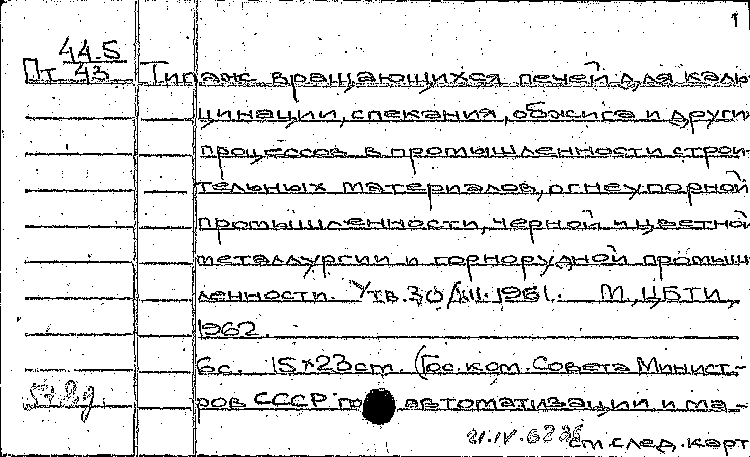 1
44.5
Пт 43 Типаж вращающихся печей для каль
цинации, спекания, обжига и други
процессов в промышленности строи
тельных материалов, огнеупорной
промышленности, черной и цветной
металлургии и горнорудной промыш
ленности. Утв. 30/XII. 1961. М, ЦБТИ,
1962.
6с. 15×23cm. (Гос. ком. Совета Минист-
ров СССР по автоматизации и ма-
21.IV.62
см след. карт